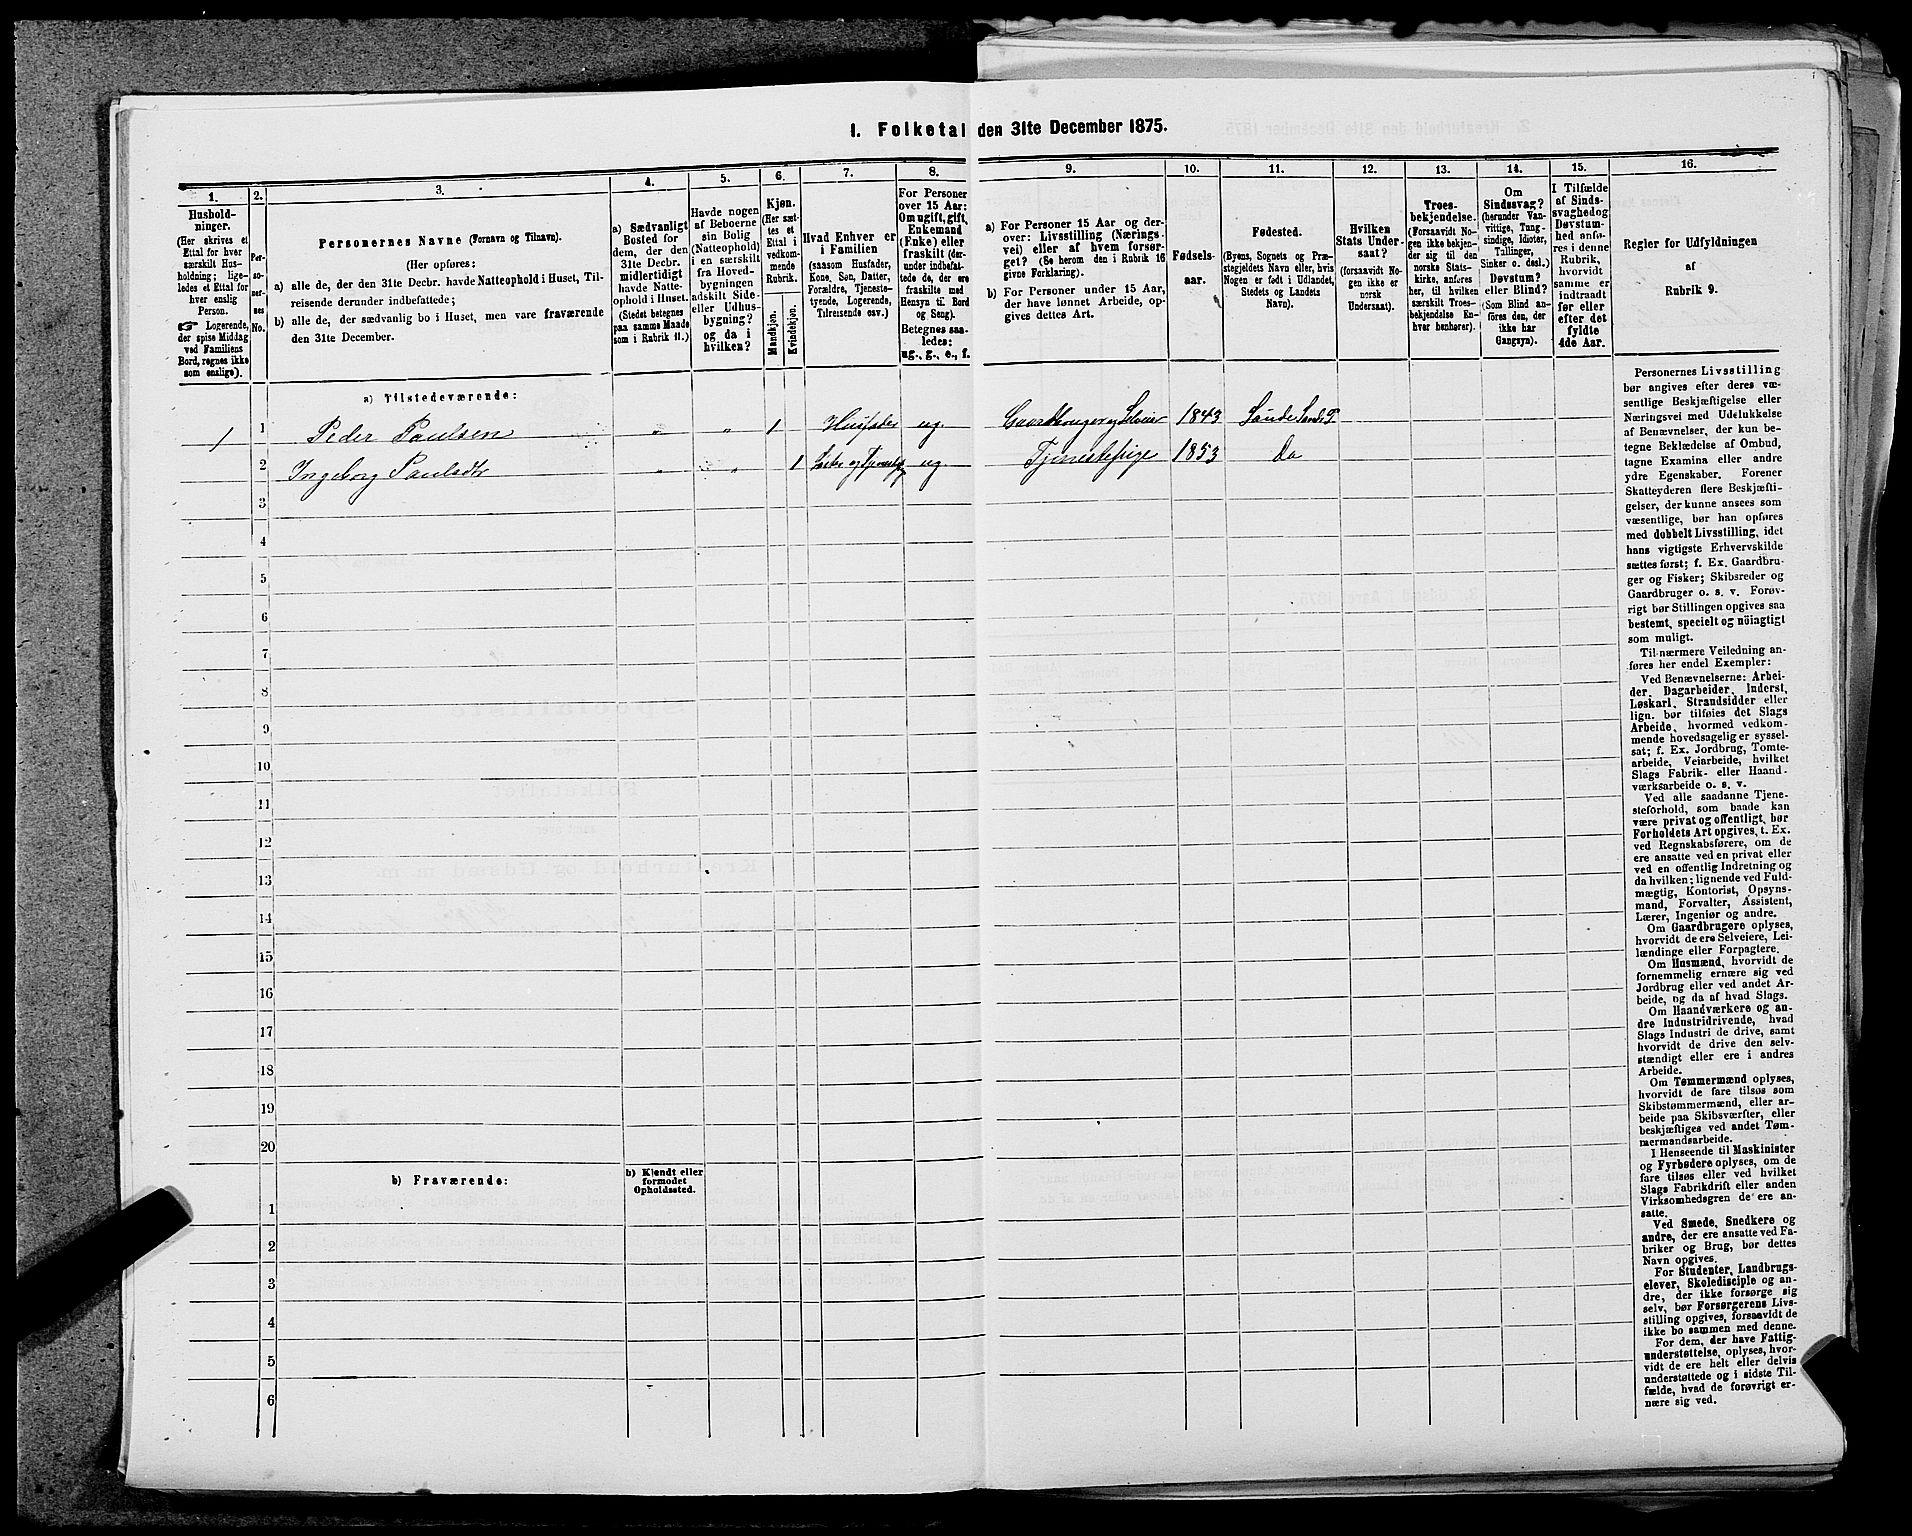 1. Folketal den 31te December 1875.
1.
2.
3.
4.
5.
6.
7.
8.
9.
10.
11.
12.
13.
14.
15.
16.
Hushold-
ninger.
(Her skrives et
Ettal for hver
særskilt Hus-
holdning; lige-
ledes et Ettal for
hver enslig
Person.
☞ Logerende,
der spise Middag
ved Familiens
Bord, regnes ikke
som enslige).
Per-
so-
ner-
nes
No.
Personernes Navne (Fornavn og Tilnavn).
(Her opføres:
a) alle de, der den 31te Decbr. havde Natteophold i Huset, Til-
reisende derunder indbefattede;
b) alle de, der sædvanlig bo i Huset, men vare fraværende
den 31te December.
a) Sædvanligt
Bosted for
dem, der den
31te Decbr.
midlertidigt
havde Natte-
ophold i Huset.
(Stedet betegnes
paa samme Maade
som i Rubrik 11.)
Havde nogen
af Beboerne
sin Bolig
(Natteophold)
i en særskilt
fra Hoved-
bygningen
adskilt Side-
eller Udhus-
bygning?
og da i
hvilken?
Kjøn.
(Her sæt-
tes et
Ettal i
vedkom-
mende
Rubrik.
Mandkjøn.
Kvindekjøn.
Hvad Enhver er
i Familien
(saasom Husfader,
Kone, Søn, Datter,
Forældre, Tjeneste-
tyende, Logerende,
Tilreisende osv.)
For Personer
over 15 Aar:
Om ugift, gift,
Enkemand
(Enke) eller
fraskilt (der-
under indbefat-
tede de, der ere
fraskilte med
Hensyn til Bord
og Seng).
Betegnes saa-
ledes:
ug., g., e., f.
a) For Personer 15 Aar og der-
over: Livsstilling (Nærings-
vei) eller af hvem forsør-
get? (Se herom den i Rubrik 16
givne Forklaring).
b) For Personer under 15 Aar,
der have lønnet Arbeide, op-
gives dettes Art.
Fødsels-
aar.
Fødested.
(Byens, Sognets og Præ-
stegjeldets Navn eller, hvis
Nogen er født i Udlandet,
Stedets og Landets
Navn).
Hvilken
Stats Under-
saat?
(forsaavidt No-
gen ikke er
norsk
Undersaat).
Troes-
bekjendelse.
(Forsaavidt No-
gen ikke bekjen-
der sig til den
norske Stats-
kirke, anføres
her, til hvilken
særskilt Troes-
bekjendelse En-
hver henhører).
Om
Sindssvag?
(herunder Van-
vittige, Tung-
sindige, Idioter,
Tullinger,
Sinker o. desl.)
Døvstum?
eller Blind?
(Som Blind an-
føres den, der
ikke har
Gangsyn).
I Tilfælde
af Sinds-
svaghed og
Døvstum-
hed anfø-
res i denne
Rubrik,
hvorvidt
samme er
indtraadt
før eller
efter det
fyldte
4de Aar.
Regler for Udfyldningen
af
Rubrik 9.
a) Tilstedeværende:
1 1 Peder Paulsen " " 1 Husfader ug. Gaardbruger og Selveier 1843 Sande Sande P.
2 Ingeborg Paulsdtr " " 1 ug Tjenestepige 1853 Do
3
4
5
6
7
8
9
10
11
12
13
14
15
16
17
18
19
20
b) Fraværende:
b) Kjendt eller
formodet
Opholdssted.
1
2
3
4
5
6
Personernes Livsstilling
bør angives efter deres væ-
sentlige Beskjæftigelse eller
Næringsvei med Udelukkelse
af Benævnelser, der kun be-
tegne Beklædelse af Ombud,
tagne Examina eller andre
ydre Egenskaber. Forener
Skatteyderen flere Beskjæfti-
gelser, der kunne ansees som
væsentlige, bør han opføres
med dobbelt Livsstilling, idet
hans vigtigste Erhvervskilde
sættes først; f. Ex. Gaardbru-
ger og Fisker; Skibsreder og
Gaardbruger o. s. v. Forøv-
rigt bør Stillingen opgives saa
bestemt, specielt og nöiagtigt
som muligt.
Til nærmere Veiledning an-
føres her endel Exempler:
Ved Benævnelserne: Arbei-
der, Dagarbeider, Inderst,
Løskarl, Strandsidder eller
lign. bør tilføies det Slags
Arbeide, hvormed vedkom-
mende hovedsagelig er syssel-
sat; f. Ex. Jordbrug, Tomte-
arbeide, Veiarbeide, hvilket
Slags Fabrik- eller Haand-
værksarbeide o. s. v.
Ved alle saadanne Tjene-
steforhold, som baade kan
være privat og offentligt, bør
Forholdets Art opgives, t. Ex.
ved Regnskabsførere, om de
ere ansatte ved en privat eller
ved en offentlig Indretning og
da hvilken; lignende ved Fuld-
mægtig, Kontorist, Opsyns-
mand, Forvalter, Assistent,
Lærer, Ingeniør og andre.
Om Gaardbrugere oplyses,
hvorvidt de ere Selveiere, Lei-
lændinge eller Forpagtere.
Om Husmænd, hvorvidt de
fornemmelig ernære sig ved
Jordbrug eller ved andet Ar-
beide, og da af hvad Slags.
Om Haandværkere og an-
dre Industridrivende, hvad
Slags Industri de drive, samt
hvorvidt de drive den selv-
stændigt eller ere i andres
Arbeide.
Om Tømmermænd oplyses,
hvorvidt de fare tilsøs som
Skibstømmermænd, eller ar-
beide paa Skibsværfter, eller
beskjæftiges ved andet Tøm-
mermandsarbeide.
I Henseende til Maskinister
og Fyrbødere oplyses, om de
fare tilsøs eller ved hvilket
Slags Fabrikdrift eller anden
Virksomhedsgren de ere an-
satte.
Ved Smede, Snedkere og
andre, der ere ansatte ved Fa-
briker og Brug, bør dettes
Navn opgives.
For Studenter, Landbrugs-
elever, Skoledisciple og an-
dre, der ikke forsørge sig
selv, bør Forsørgerens Livs-
stilling opgives, forsaavidt de
ikke bo sammen med denne.
For dem, der have Fattig-
understøttelse, oplyses, hvor-
vidt de ere helt eller delvis
understøttede og i sidste Til-
fælde, hvad de forøvrigt er-
nære sig ved.